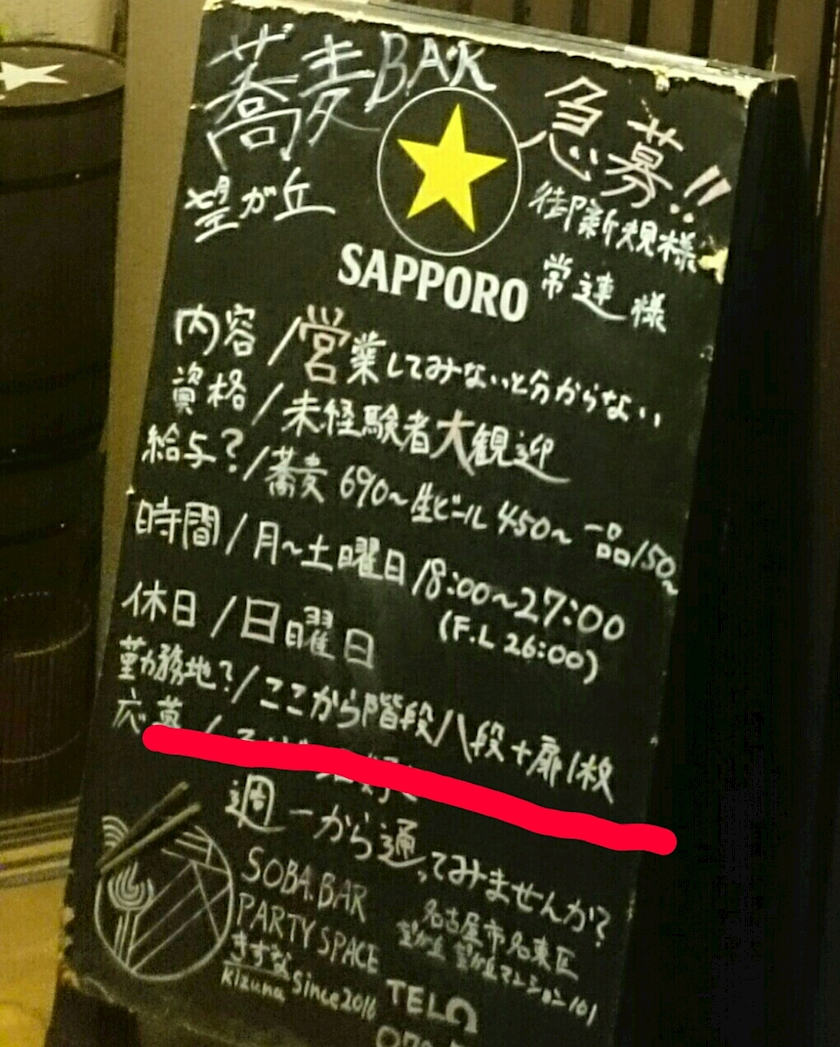 蕎麦BAR
望が丘
SAPPORO
急募!!
御新規様
常連様
内容/営業してみないと分からない
資格/未経験者大観迎
給与?/蕎麦690~生ビール450~一品150~
時間/月~土曜日18:00~27:00
(F.L 26:00)
休日/日曜日
勤務地?/ここから階段八段+扉1枚
応募/
週一から通ってみませんか?
SOBA.BAR
PARTY SPACE
きずな
Kizuna since 2016
名古屋市名東区
望が丘 望が丘マンション101
TEL